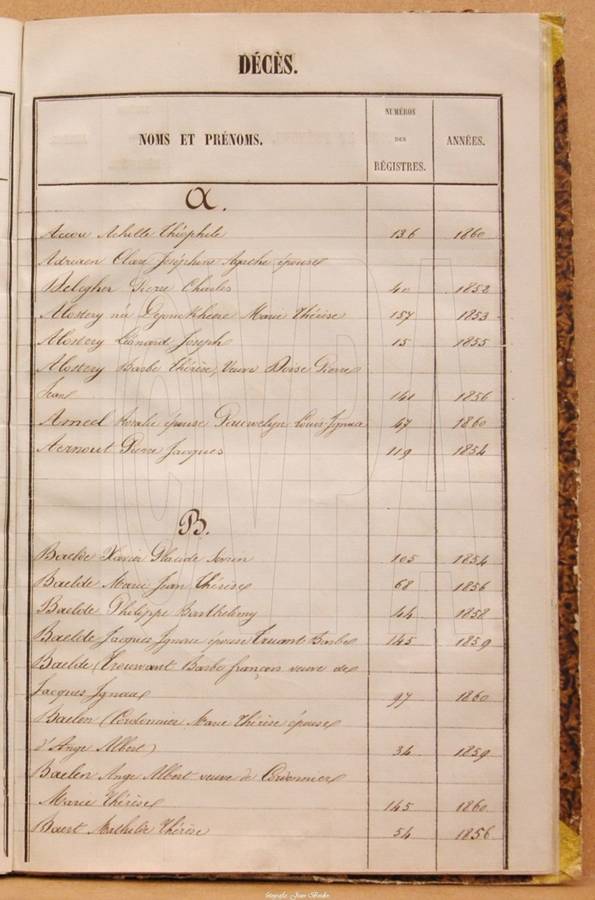 DÉCÈS.
NOMS ET PRÉNOMS.
NUMÉROS
DES
RÉGISTRES.
ANNÉES.
A.
Accou Achille Théophile 136 1860
Adriaen Clare Joséphine Agathe épouse
Belegher Pierre Charles 40 1852
née Marie Thérèse 157 1853
Léonard Joseph 15 1855
Barbe Thérèse, Veuve Pierre
Jean 141 1856
Ameel Rosalie épouse Pauwelyn Louis Ignace 47 1860
Aernout Pierre Jacques 119 1854
B.
Baelde Xavier 105 1854
Baelde Marie Jean Thérèse 68 1856
Baelde Philippe Barthelemy 44 1858
Baelde Jacques Ignace épouse Truant Barbe 145 1859
Baelde (Trouwant Barbe françois veuve de
Jacques Ignace 97 1860
Baelen (Cordonnier Marie Thérèse épouse
d'Ange Albert) 34 1859
Baelen Ange Albert veuve de Cordonnier
Marie Thérèse 145 1860
Baert Mathilde Thérèse 54 1856
CVPA